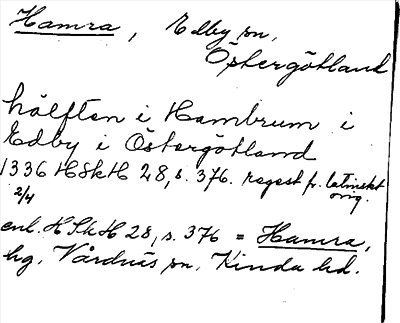 Hamra, Edby sn,
Östergötland
hälften i Hambrum i
Edby i Östergötland
1336 HSkH 28, s. 376. regest fr. latinskt
orig.
2/4
enl. HSkH 28, s. 376 = Hamra,
hg. Vårdnäs sn, Kinda hd.